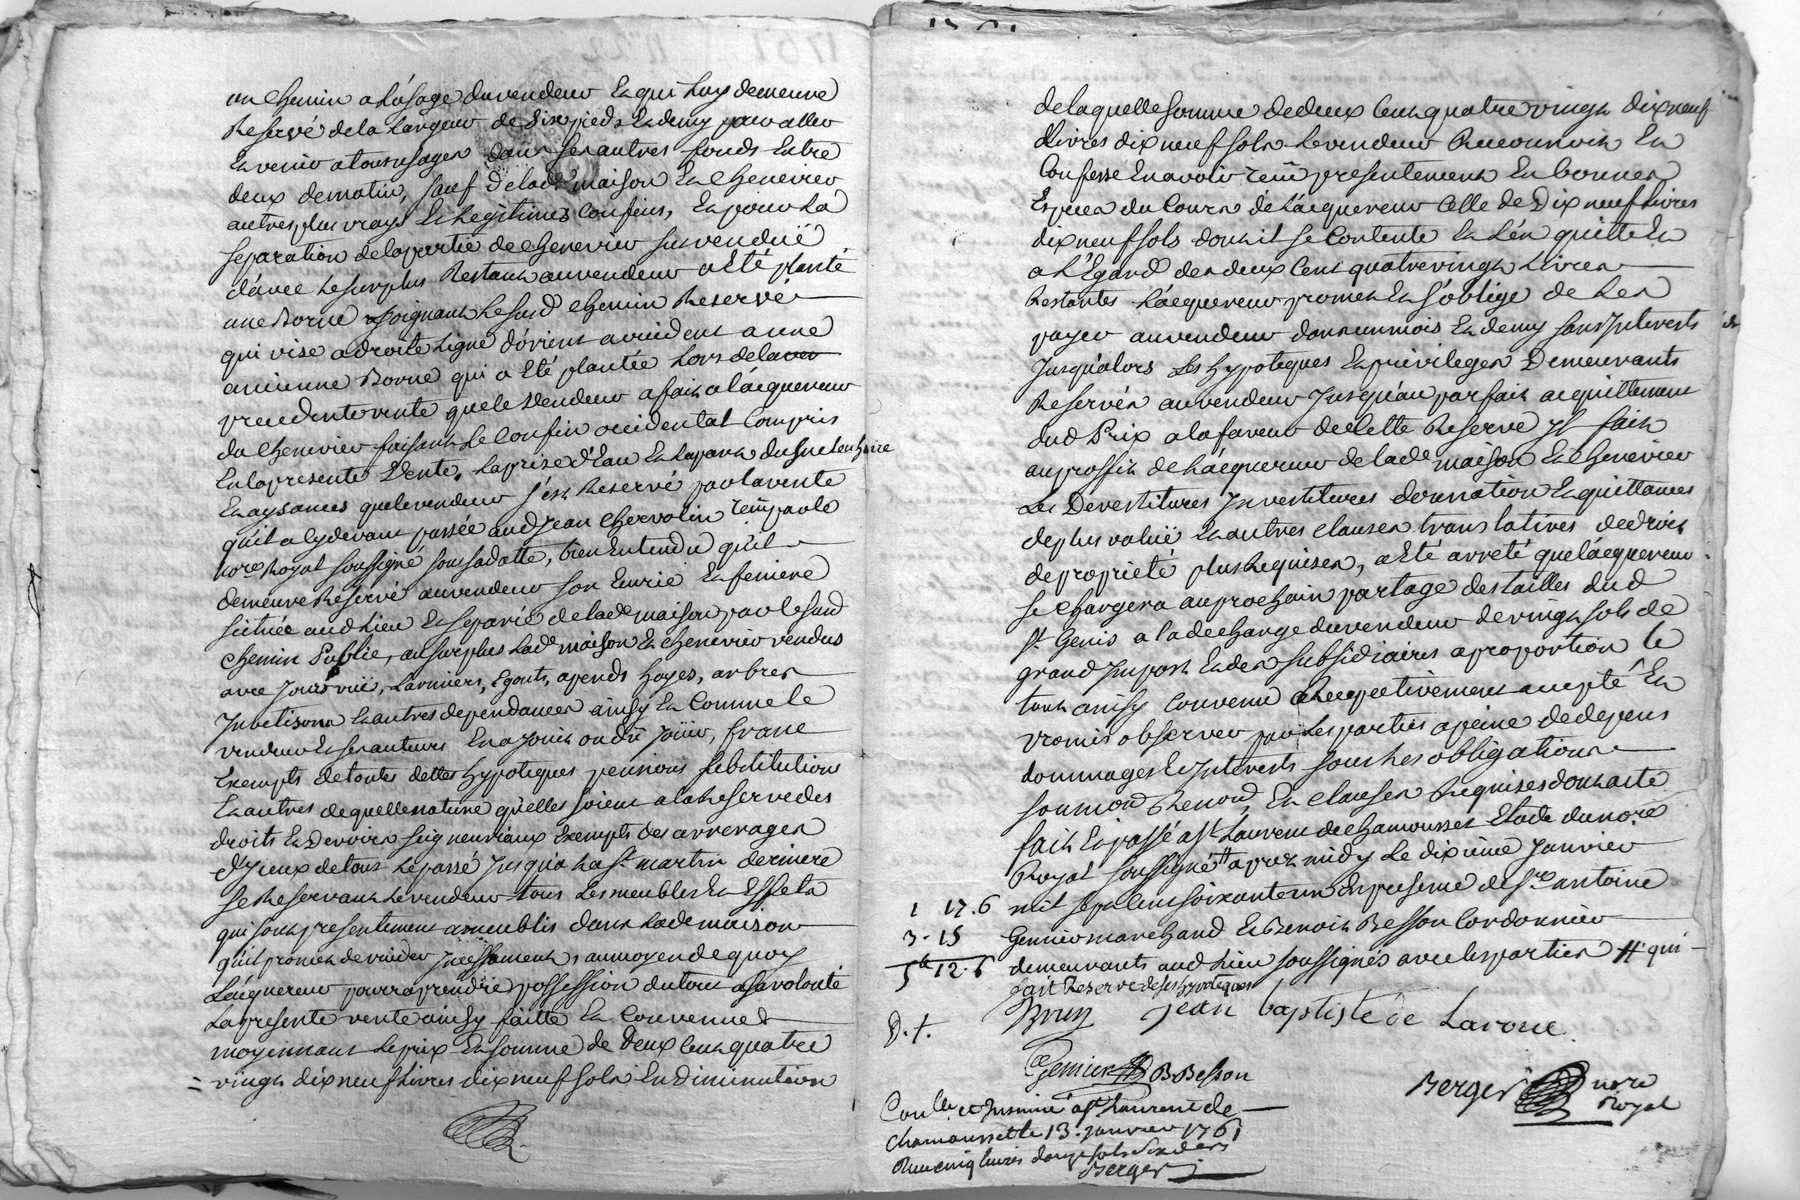 un chemin a L'usage du vendeur Et qui Luy demeure
Reservé de la Largeur de Dix pieds Et demy pour aller
Et venir a tous usages dans ses autres fonds Entre
deux de matin, sauf de lade maison Et Chenevier
autres plus vrays Et Legitimes Confins, Et pour La
separation de la partie de Chenevier sus venduë
d'avec Le surplus Restant au vendeur a Eté planté
une Borne joignant Le susd chemin Reservé
qui vise a droite Ligne d'orient a occident a une
ancienne Borne qui a Eté plantée Lors de la
precedente vente que le Vendeur a fait a l'acquereur
du Chenevier faisant Le Confin occidental Compris
En la presente Vente. La prise d'Eau Et la part du
Et aysances que le vendeur s'est Reservé par la vente
qu'il a cy devant passée aud Jean Chervolin reçuë par le
nore Royal soussigné sous sa datte, bien Entendu qu'il
demeure Reservé au vendeur son Ecurie Et feniere
scituée aud Lieu Et separée de lade maison par le susd
chemin Public, au surplus Lade maison Et Chenevier vendus
avec Jours, vuë, Larmiers, Egouts, apends hayes, arbres
Et autres dependances ainsy Et Comme le
vendeur Et ses auteurs En a Jouit ou dû Joüir, franc
Exempts de toutes dettes hypoteques pensions substitutions
Et autres de quelle nature qu'elles soient a la Reserve des
droits Et Devoirs seigneuriaux Exempts des arrerages
d'Yceux de tout Le passé Jusqu'a La St martin derniere
se Reservant Le vendeur tous Les meubles Et Effets
qui sont presentement ameublis dans Lade maison
qu'il promet de vuider Jncessament, au moyen de quoy
L'acquereur pourra prendre possession du tout a sa volonté
La presente vente ainsy faitte Et Convenuë
moyennant Le prix Et somme de Deux Cent quatre
vingt dix neuf Livres dix neuf sols En Diminution
de laquelle somme de deux Cent quatre vingt dix neuf
Livres dix neuf sols Le vendeur Reconnoit Et
Confesse En avoir reçû presentement En bonnes
Especes du Cours de L'acquereur Celle de Dix neuf Livres
dix neuf sols dont il se Contente Et L'en quitte Et
a L'Egard des deux Cent quatre vingt Livres
Restantes L'acquereur promet Et s'oblige de Les
payer au vendeur dans un mois Et demy sans Jnterests
Jusqu'alors Les hypoteques Et privileges Demeurants
Reservés au vendeur Jusqu'au parfait acquittement
dud Prix a la faveur de Cette Reserve Jl fait
au proffit de L'acquereur de lade maison Et Chenevier
Les Devestitures Jnvestitures donnation Et quittances
de plus valuë Et autres clauses translatives de droit
de proprieté plus Requises, a Eté arreté que L'acquereur
se chargera au prochain partage des tailles dud
St Genis a la decharge du vendeur de vingt sols de
grand Jmpost Et des subsidiaires a proportion le
tout ainsy Convenu Respectivement accepté Et
promis observer par Les parties a peine de depens
dommages Et Jnterests sous Les obligations
soumond Renond Et clauses Requises dont acte
fait Et passé a St Laurent de Chamousset Etude du nore
Royal soussigné # apres midy Le dixieme Janvier
mil sept Cent soixante un En presence de Sr antoine
Genier marchand Et Benoit Besson Cordonnier
demeurants aud Lieu soussignés avec les parties # qui
fait Reserve de ses hypoteques
1 17.6
3. 15
5tt 12.6
Brun Jean baptiste de Laroue
D.t.
Genier B Besson
Berger nore
Royal
Conlle et Jnsinué a St Laurent de
chamousset le 13. janvier 1761
Reçu cinq livres douze sols six ders
Berger